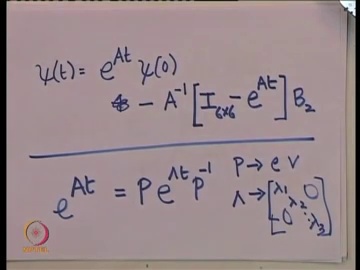 ψ(t) = e^{At} ψ(0)
- A^{-1} [I_{6×6} - e^{At}] B_2
e^{At} = P e^{Λt} P^{-1}
P → e v
Λ → [λ_1 0 λ_2 0 ⋱ λ_3]